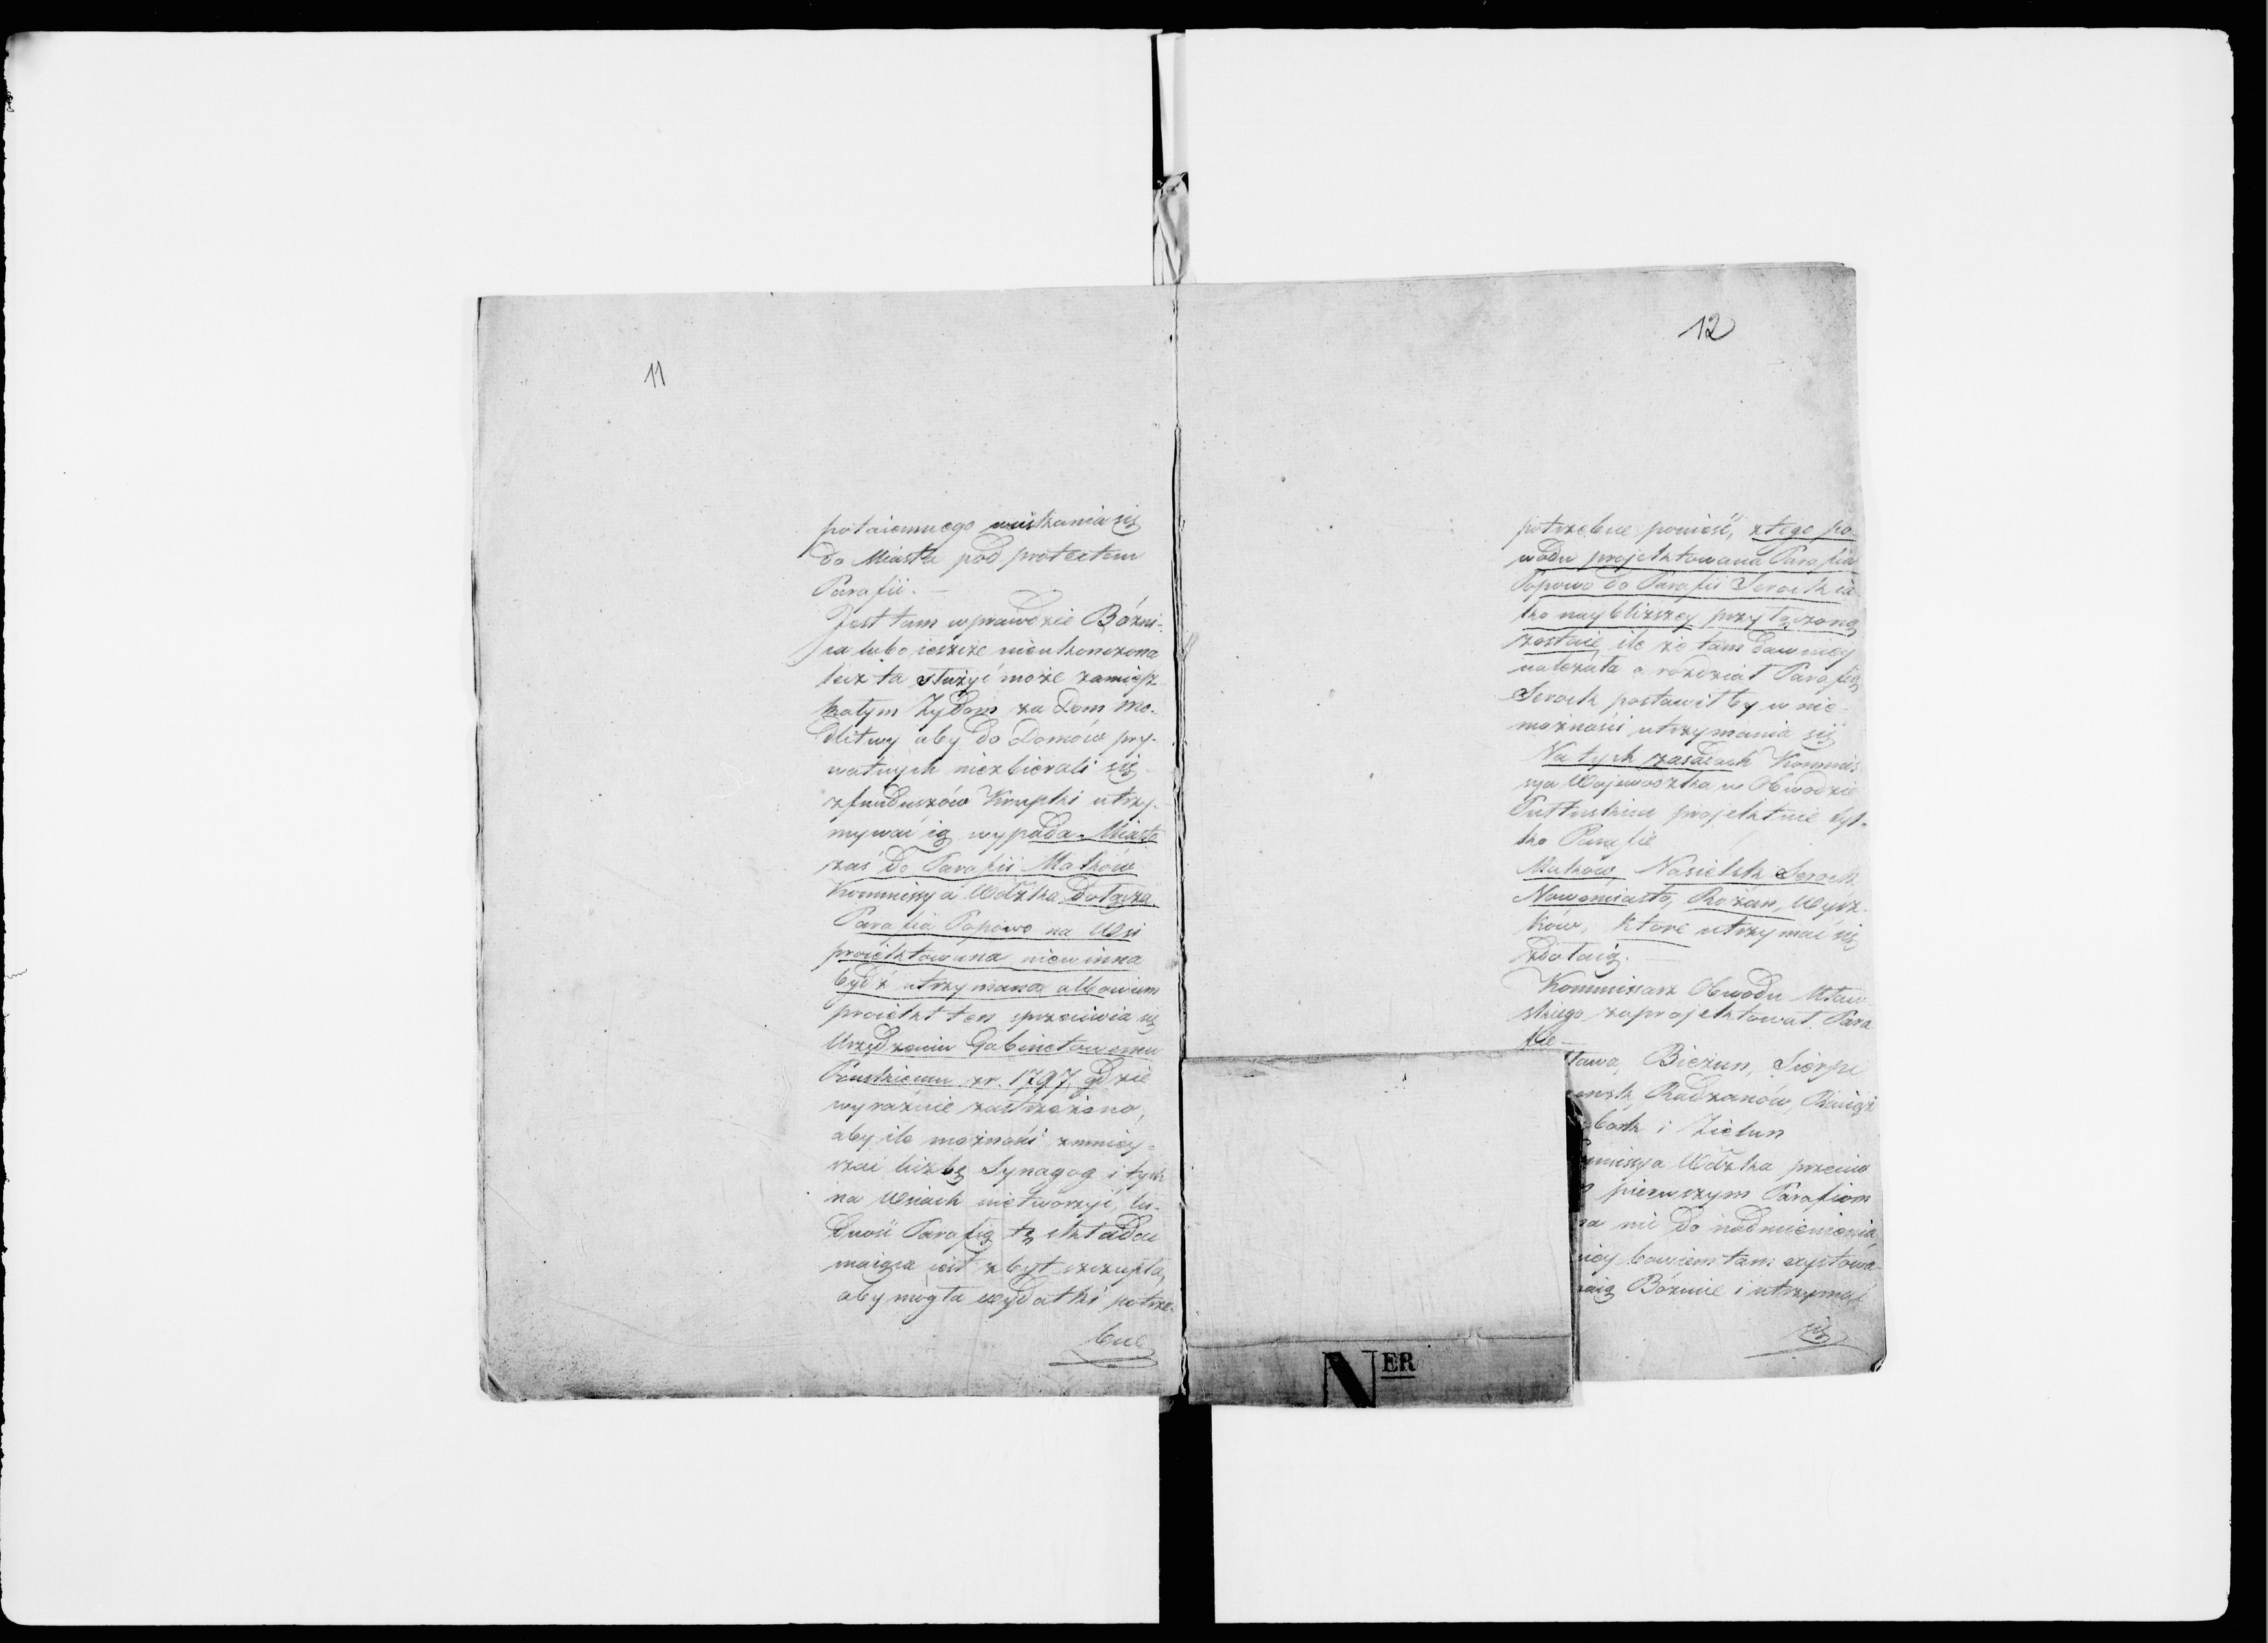 11
potaiemnego wciskania się
do Miasta pod protextem
Parafii. —
Jest tam wprawdzie Bóżni-
ca lubo ieszcze nieukonczona
lecz ta służyć może zamiesz-
kałym Żydom za Dom Mo-
dlitwy aby do Domów pry-
watnych niezbierali się
z funduszów Krupki utrzy-
mywać ią wypada. Miasto
zaś do Parafii Maków
Kommissya Wdzka dołącza.
Parafia Popowo na Wsi
proiektowana niewinna
bydź utrzymana albowiem
proiekt ten sprzeciwia się
Urządzeniu Gabinetowemu
Pruskiemu zr. 1797, gdzie
wyraźnie zastrzeżono,
aby ile możności zmniey-
szać liczbę Synagog i tych
na Wsiach nietworzyć, lu-
dność Parafią tę składać
maiąca iest zbyt szczupła,
aby mogła wydatki potrze-
bne
12
potrzebne ponieść, ztego po-
wodu projektowana Parafia
Popowo do Parafii Serock ia-
ko naybliższey przyłączoną
zostaie, ile że tam dawniey
należała a rozdział Parafią
Serock postawiłby w nie-
możności utrzymania się
Na tych zasadach Kommis-
sya Wojewodzka w Obwodzie
Pułtuskim projektuie tyl-
ko Parafie
Maków, Nasielsk Serock
Nowomiasto, Rożan, Wysz-
ków, ktore utrzymać się
zdołaią. —
Kommissarz Obwodu Mław-
skiego zaprojektował Para
fie —
ława, Bieżun, Sierpc
ensk, Radzanów, Raciąż
bork i Zielun
missya Wdzka przeciw
pierwszym Parafiom
a nic do nadmienienia
iey bowiem tam exystowa-
aią Bóżnice i utrzymać
się
N ER